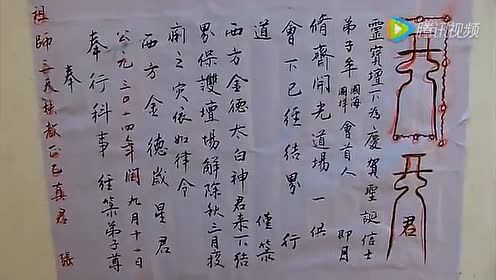 腾讯视频
君
靈寶壇下為慶賀聖誕信士
弟子年國海國祥會首人 即月
脩齋開光道場一供
會下已經結界 行
道 僅築
西方金德太白神君来下結
界保護壇場解除秋三月夜
痢之災依如律令
西方金德歲星君
公元二〇一四年閏九月十一日
奉行科事 經築弟子尊
奉
祖師三天扶教正乙真君 張